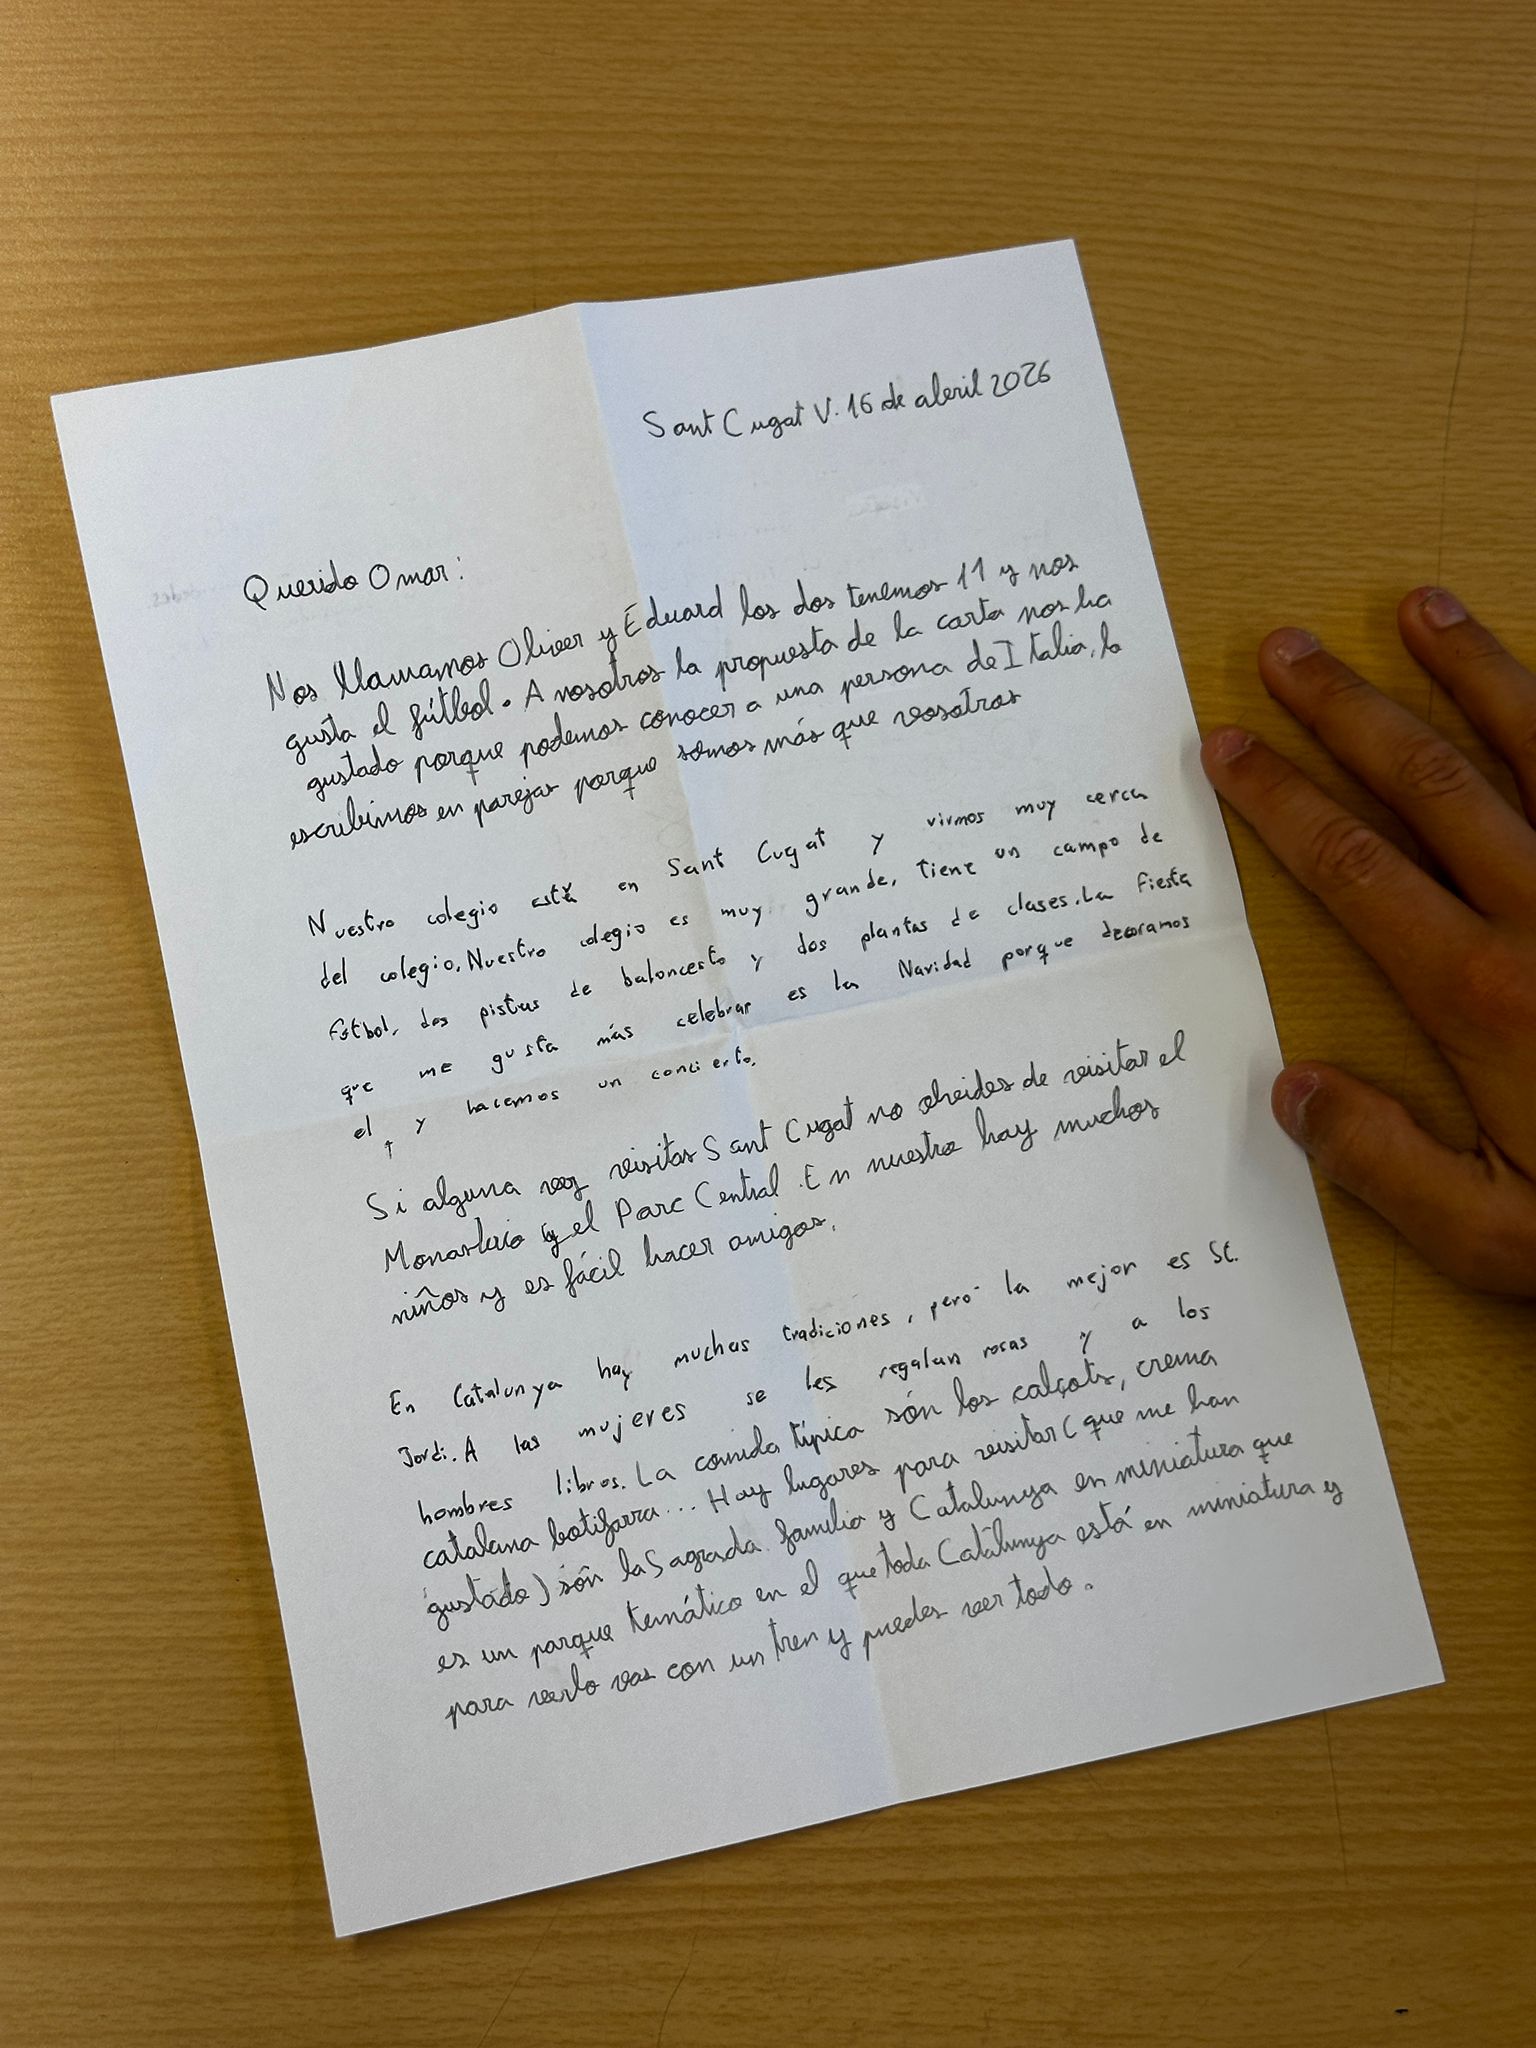 Sant Cugat V. 16 de abril 2026
Querido Omar:
Nos llamamos Oliver y Eduard los dos tenemos 11 y nos
gusta el fútbol. A nosotros la propuesta de la carta nos ha
gustado porque podemos conocer a una persona de Italia, lo
escribimos en parejas porque somos más que vosotros
Nuestro colegio está en Sant Cugat y vivmos muy cerca
del colegio. Nuestro colegio es muy grande, tiene un campo de
fútbol, dos pistas de baloncesto y dos plantas de clases. La fiesta
que me gusta más celebrar es la Navidad porque decoramos
el ↑ y hacemos un concierto.
Si alguna vez visitas Sant Cugat no olvides de visitar el
Monasterio y el Parc Central. En nuestro hay muchos
niños y es fácil hacer amigos.
En Catalunya hay muchas tradiciones, pero la mejor es St.
Jordi. A las mujeres se les regalan rosas y a los
hombres libros. La comida típica són los calçots, crema
catalana botifarra... Hay lugares para visitar (que me han
gustado) són la Sagrada familia y Catalunya en miniatura que
es un parque temático en el que toda Catalunya está en miniatura y
para verlo vas con un tren y puedes ver todo.